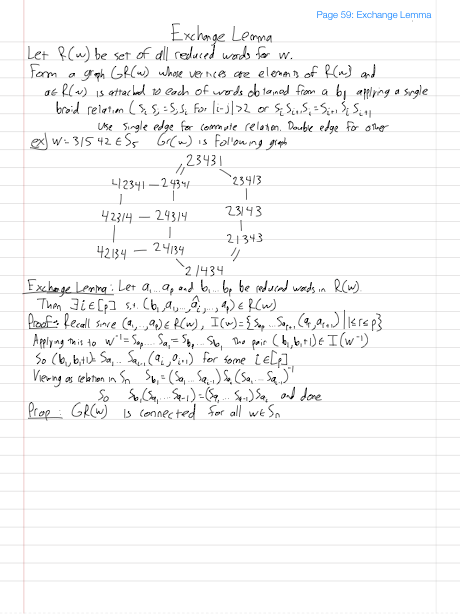 Page 59: Exchange Lemma
Exchange Lemma
Let R(w) be set of all reduced words for w.
Form a graph GR(w) whose vertices are elements of R(w) and
a∈R(w) is attached to each of words obtained from a by applying a single
braid relation (SᵢSⱼ=SⱼSᵢ for |i-j|≥2 or SᵢSᵢ₊₁Sᵢ=Sᵢ₊₁SᵢSᵢ₊₁
Use single edge for commute relation. Double edge for other
ex) w=31542∈S₅ Gr(w) is following graph
23431
42341 — 24341 23413
42314 — 24314 23143
42134 — 24134 21343
21434
Exchange Lemma: Let a₁...aₚ and b₁...bₚ be reduced words in R(w).
Then ∃i∈[p] s.t. (b₁,a₁,...,âᵢ,...,aₚ)∈R(w)
Proof: Recall since (a₁,...,aₚ)∈R(w), I(w)={Sₐₚ...Sₐᵣ₊₁(aᵣ,aᵣ₊₁) | 1≤r≤p}
Applying this to w⁻¹=Sₐₚ...Sₐ₁=S_bₚ...S_b₁, The pair (b₁,b₁+1)∈I(w⁻¹)
So (b₁,b₁+1)=Sₐ₁...Sₐᵢ₋₁(aᵢ,aᵢ+1) for some i∈[p]
Viewing as relation in Sₙ S_b₁=(Sₐ₁...Sₐᵢ₋₁)Sₐᵢ(Sₐ₁...Sₐᵢ₋₁)⁻¹
So S_b₁(Sₐ₁...Sₐᵢ₋₁)=(Sₐ₁...Sₐᵢ₋₁)Sₐᵢ and done
Prop: GR(w) is connected for all w∈Sₙ